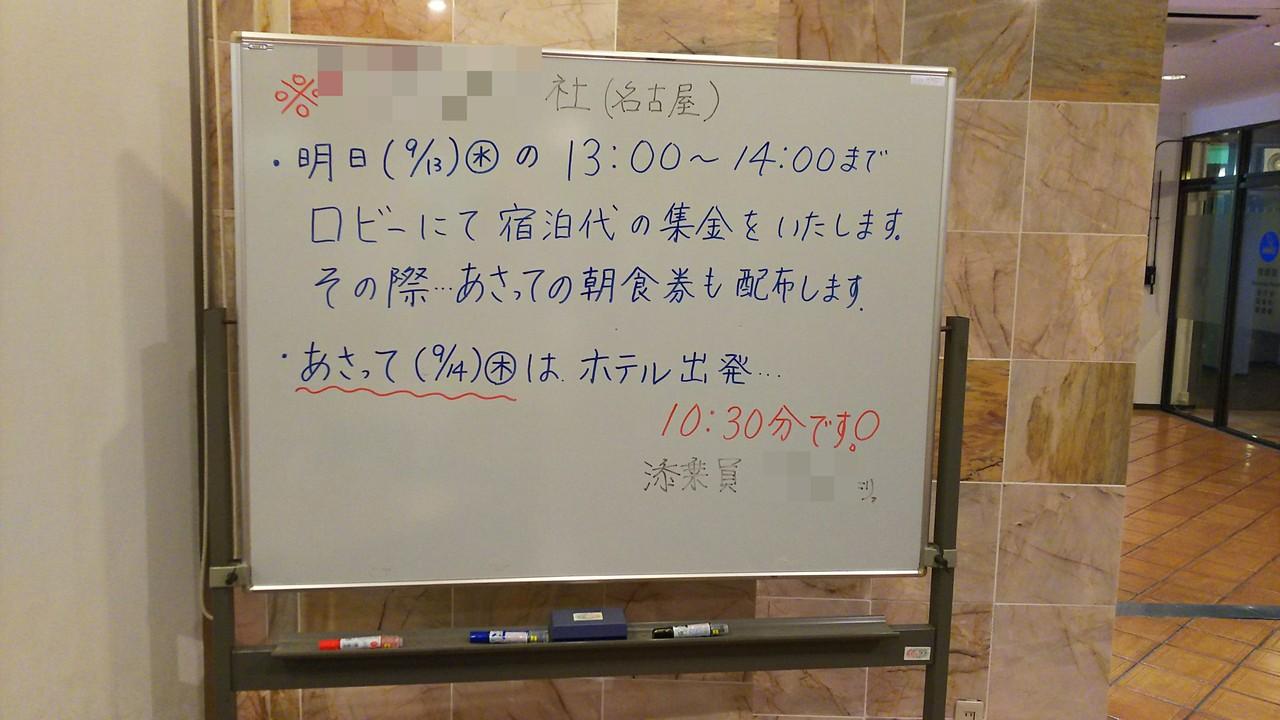 ※ 社(名古屋)
・明日(9/13)㊌の 13:00〜14:00まで
ロビーにて宿泊代の集金をいたします。
その際…あさっての朝食券も配布します。
・あさって(9/14)㊍は ホテル出発…
10:30分です。
添乗員